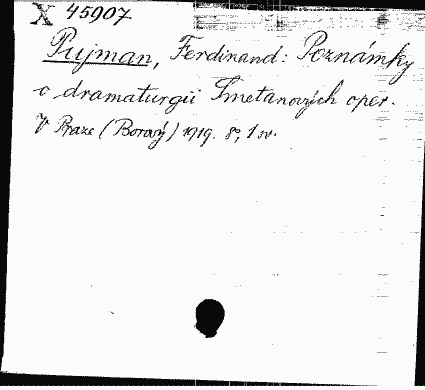 X 45907
Pujman, Ferdinand: Poznámky
o dramaturgii Smetanových oper.
V Praze (Borový) 1919. 8°, 1 sv.